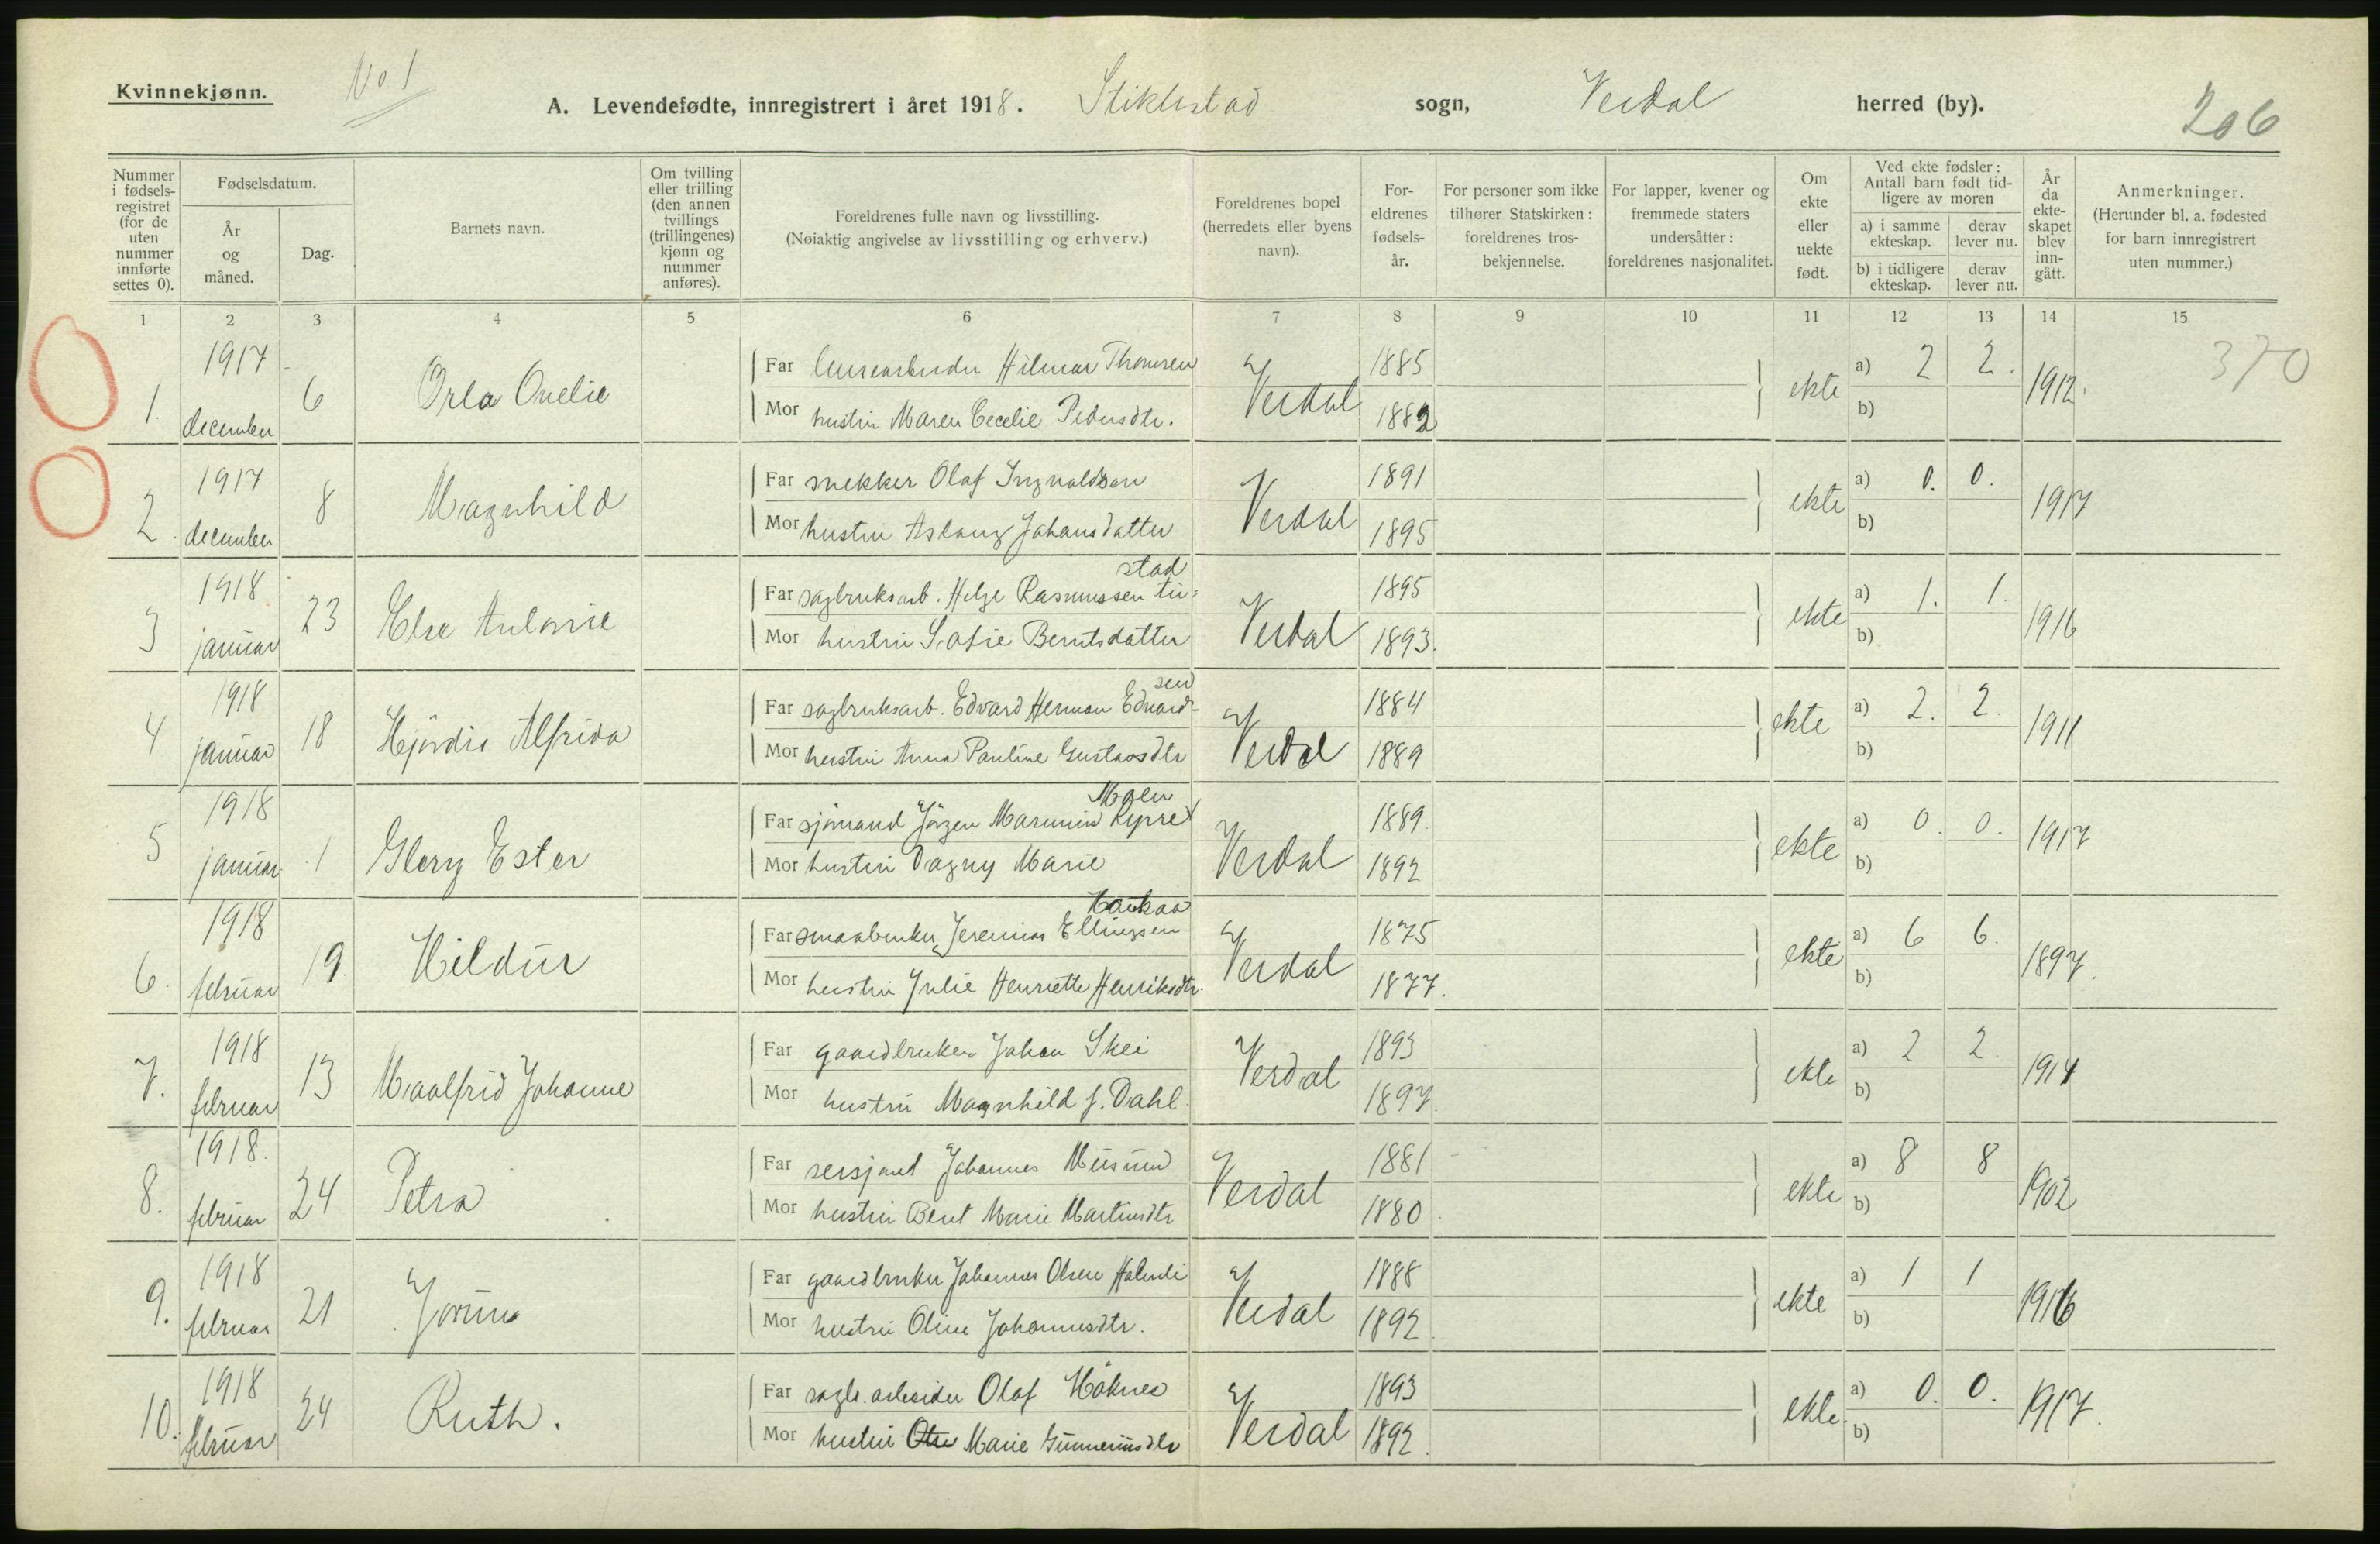 Kvinnekjønn.
No 1
A. Levendefødte, innregistrert i året 1918. Stiklestad sogn, Verdal herred (by).
206
Nummer i fødselsregistret (for de uten nummer innførte settes 0).
Fødselsdatum.
År og måned.
Dag.
Barnets navn.
Om tvilling eller trilling (den annen tvillings (trillingenes) kjønn og nummer anføres).
Foreldrenes fulle navn og livsstilling.
(Nøiaktig angivelse av livsstilling og erhverv.)
Foreldrenes bopel (herredets eller byens navn).
Foreldrenes fødselsår.
For personer som ikke tilhører Statskirken: foreldrenes trosbekjennelse.
For lapper, kvener og fremmede staters undersåtter: foreldrenes nasjonalitet.
Om ekte eller uekte født.
Ved ekte fødsler: Antall barn født tidligere av moren
a) i samme ekteskap. derav lever nu.
b) i tidligere ekteskap. derav lever nu.
År da ekteskapet blev inngått.
Anmerkninger.
(Herunder bl. a. fødested for barn innregistrert uten nummer.)
1 2 3 4 5 6 7 8 9 10 11 12 13 14 15
370
1. 1917 december 6 Orla Ovelie
Far Hilmar Thomsen Verdal 1885 ekte a) 2 2. 1912.
Mor hustru Maren Cecelie Pedersdtr. 1882 b)
2. 1917 december 8 Magnhild
Far snekker Olaf Ingvaldsen Verdal 1891 ekte a) 0. 0. 1917
Mor hustru Aslaug Johansdatter 1895 b)
3 1918 januar 23 Else Antonie
stad
Far sagbruksarb. Helge Rasmussen Verdal 1895 ekte a) 1. 1. 1916
Mor hustru Sofie Berntsdatter 1893. b)
4 1918 januar 18 Hjördis Alfrida
sen
Far sagbruksarb. Edvard Herman Edvard- Verdal 1884 ekte a) 2. 2. 1911
Mor hustru Anna Pauline Gustavsdtr 1889 b)
5 1918 januar 1 Glery Ester
Moen
Far sjömand Jörgen Marinius Verdal 1889. ekte a) 0. 0. 1917
Mor hustru Dagny Marie 1892 b)
6. 1918 februar 19. Hildur
Haukaa
Far smaabruker Jeremias Ellingsen Verdal 1875 ekte a) 6 6. 1897.
Mor hustru Julie Henriette Henriksdtr. 1877. b)
7. 1918 februar 13 Maalfrid Johanne
Far gaardbruker Johan Skei Verdal 1893 ekte a) 2 2. 1914
Mor hustru Magnhild f. Dahl 1897. b)
8. 1918. februar 24 Petra
Far sersjant Johannes Musum Verdal 1881 ekte a) 8 8 1902
Mor hustru Beret Marie Martinsdtr 1880 b)
9. 1918 februar 21 Jorunn
Far gaardbruker Johannes Olsen Verdal 1888 ekte a) 1 1 1916
Mor hustru Oline Johannesdtr. 1892 b)
10. 1918 februar 24 Ruth.
Far sagb. arbeider Olaf Höknes Verdal 1893 ekte. a) 0. 0. 1917.
Mor hustru Marie Gunneriusdtr 1892. b)